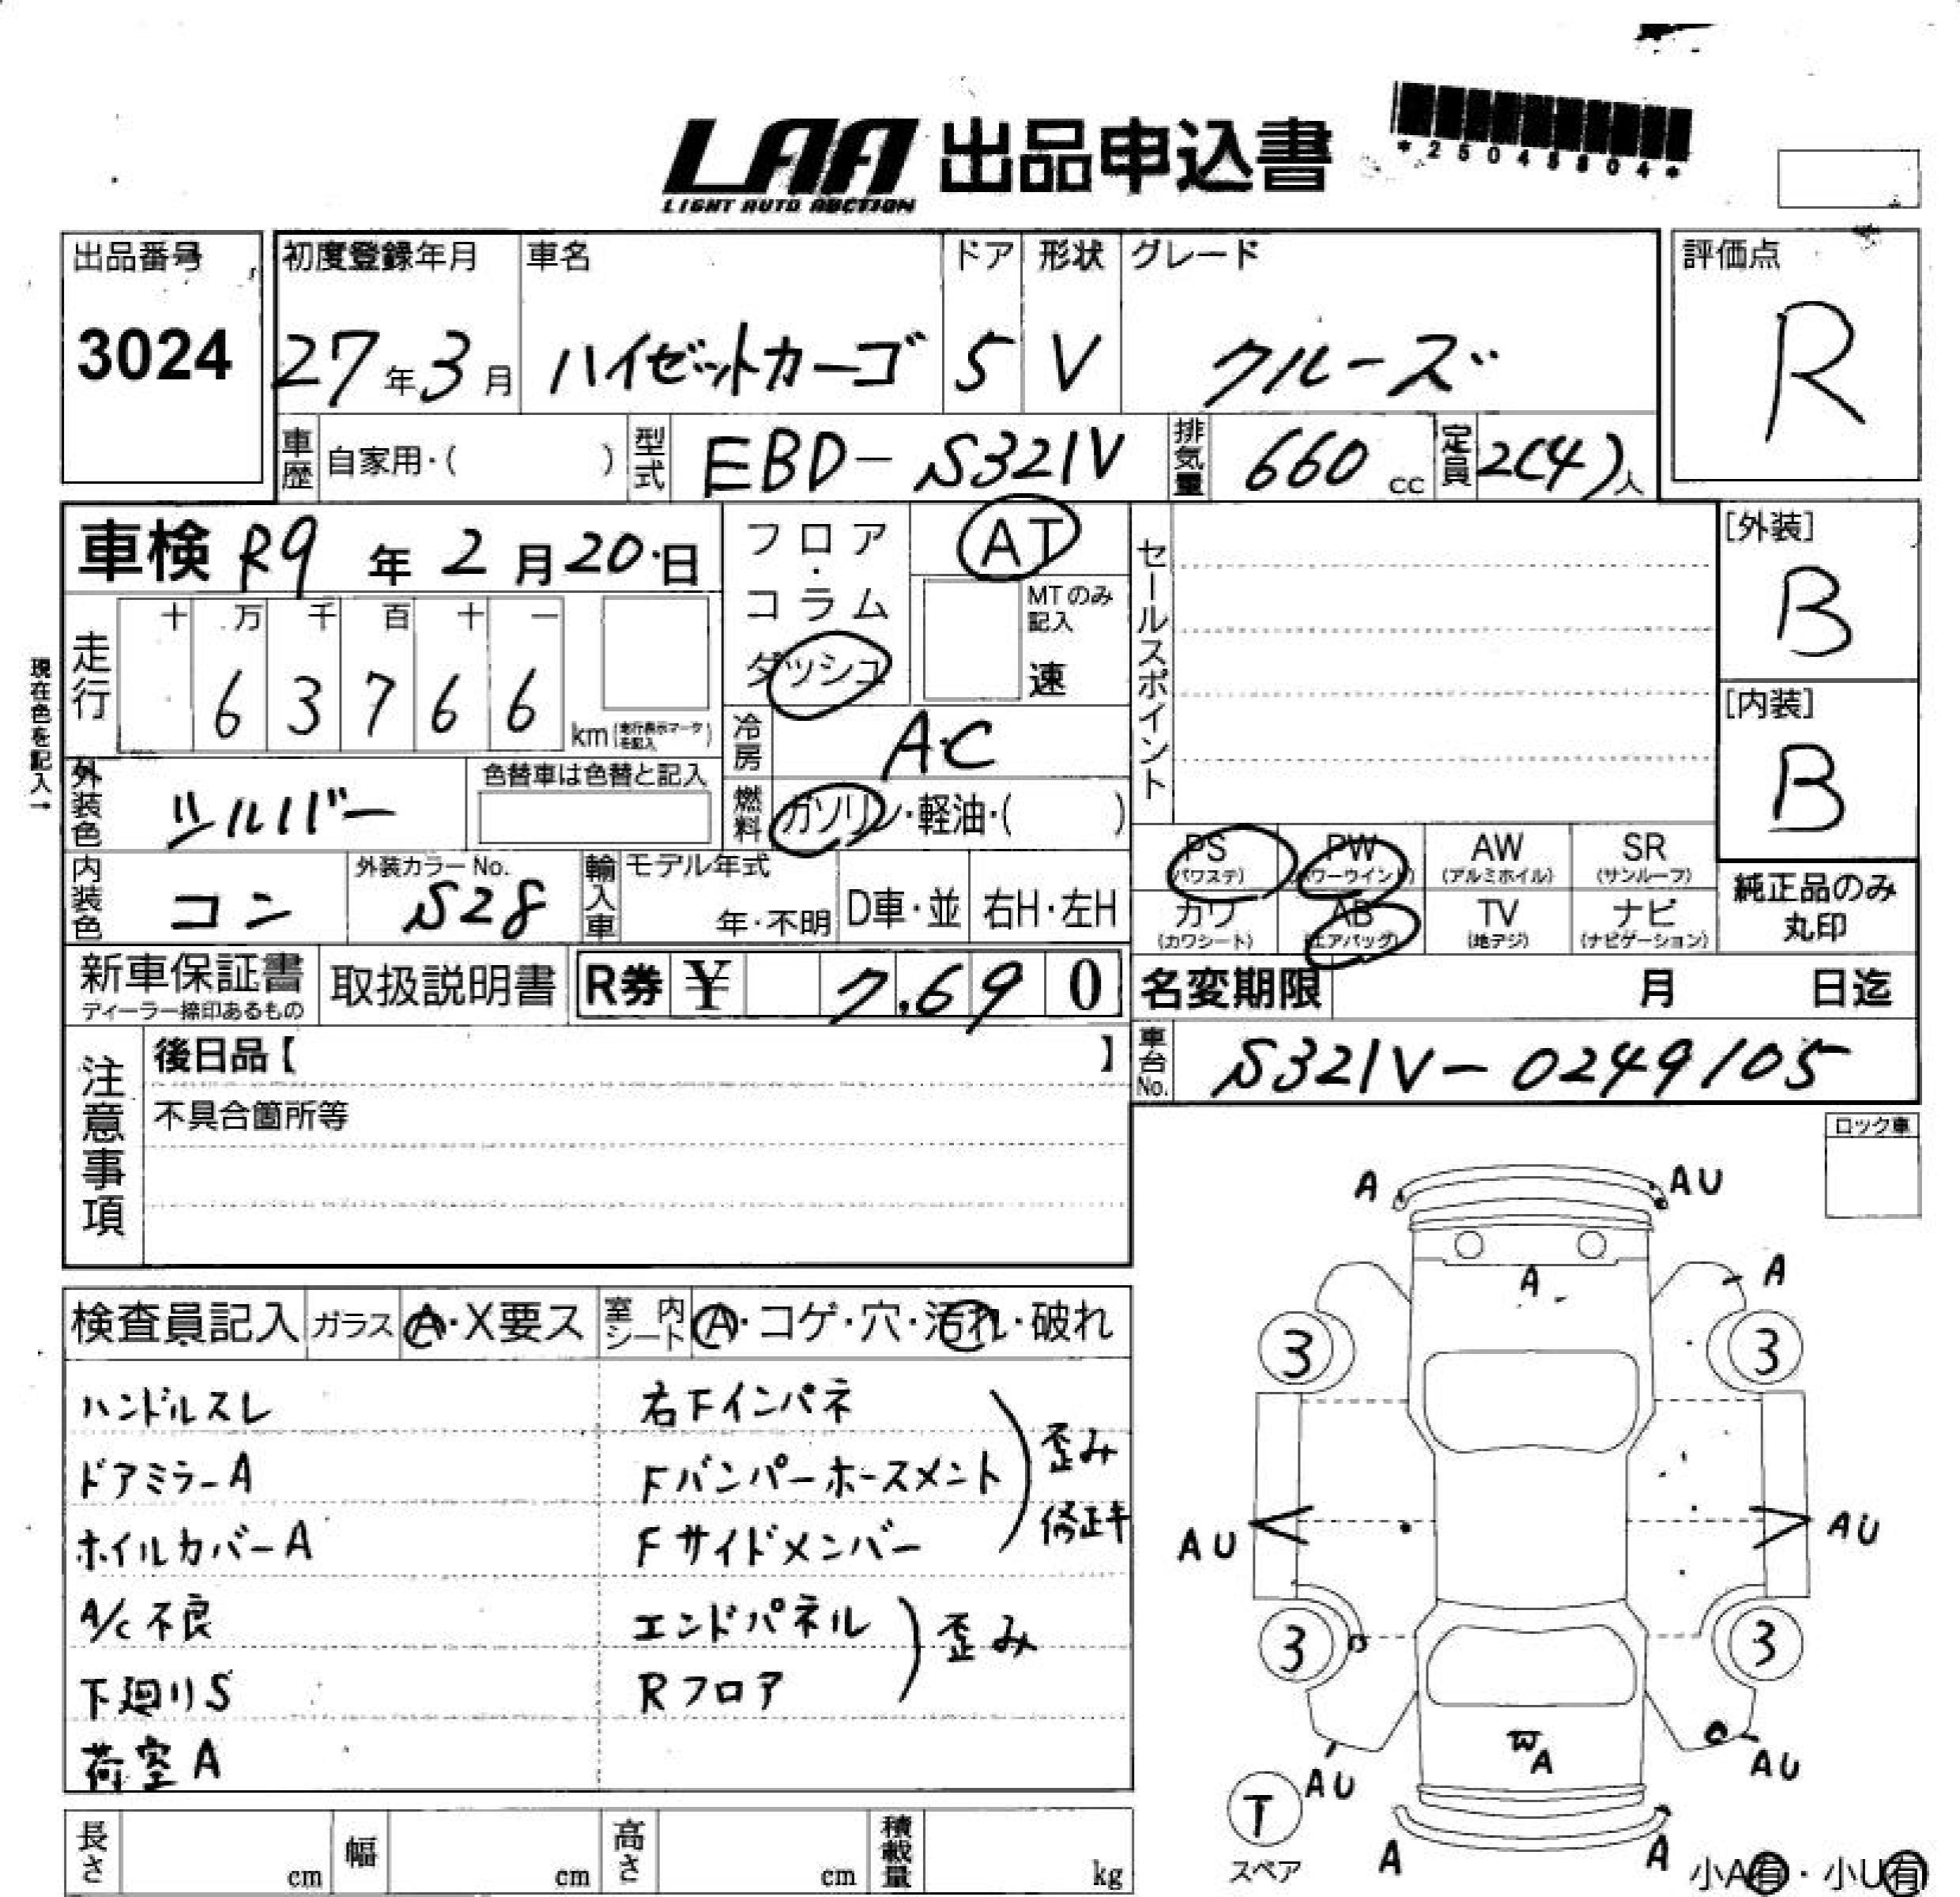 LAA 出品申込書
LIGHT AUTO AUCTION
出品番号
3024
初度登録年月
27年3月
車名
ハイゼットカーゴ
ドア
5
形状
V
グレード
クルーズ
評価点
R
車歴 自家用・( )
型式 EBD-S321V
排気量 660 cc
定員 2(4)人
車検 R9年2月20日
フロア・コラム
ダッシュ
AT
MTのみ記入
速
セールスポイント
[外装]
B
[内装]
B
現在色を記入→
走行 十 万 千 百 十 一
6 3 7 6 6
km(走行表示マークを記入)
冷房 AC
外装色 シルバー
色替車は色替と記入
燃料 ガソリン・軽油・( )
内装色 コン
外装カラーNo.
S28
輸入車
モデル年式
年・不明
D車・並
右H・左H
PS (パワステ)
PW (パワーウインド)
AW (アルミホイル)
SR (サンルーフ)
カワ (カワシート)
AB (エアバッグ)
TV (地デジ)
ナビ (ナビゲーション)
純正品のみ
丸印
新車保証書
ディーラー捺印あるもの
取扱説明書
R券 ¥ 7,690
名変期限 月 日迄
車台No. S321V-0249105
注意事項
後日品【 】
不具合箇所等
ロック車
検査員記入 ガラス A・X要ス
室内シート A・コゲ・穴・汚れ・破れ
ハンドルスレ
ドアミラーA
ホイルカバーA
A/C不良
下廻りS
荷室A
右Fインパネ
Fバンパーホースメント
Fサイドメンバー
歪み
修正キ
エンドパネル
Rフロア
歪み
A
AU
A
A
3
3
AU
AU
3
3
W
A
AU
AU
T
スペア
A
A
小A有・小U有
長さ cm
幅 cm
高さ cm
積載量 kg